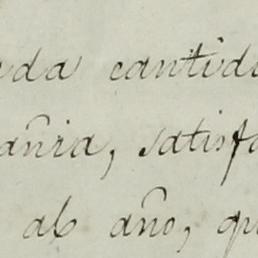 eda cantida
añia, satisfa
al año, qu